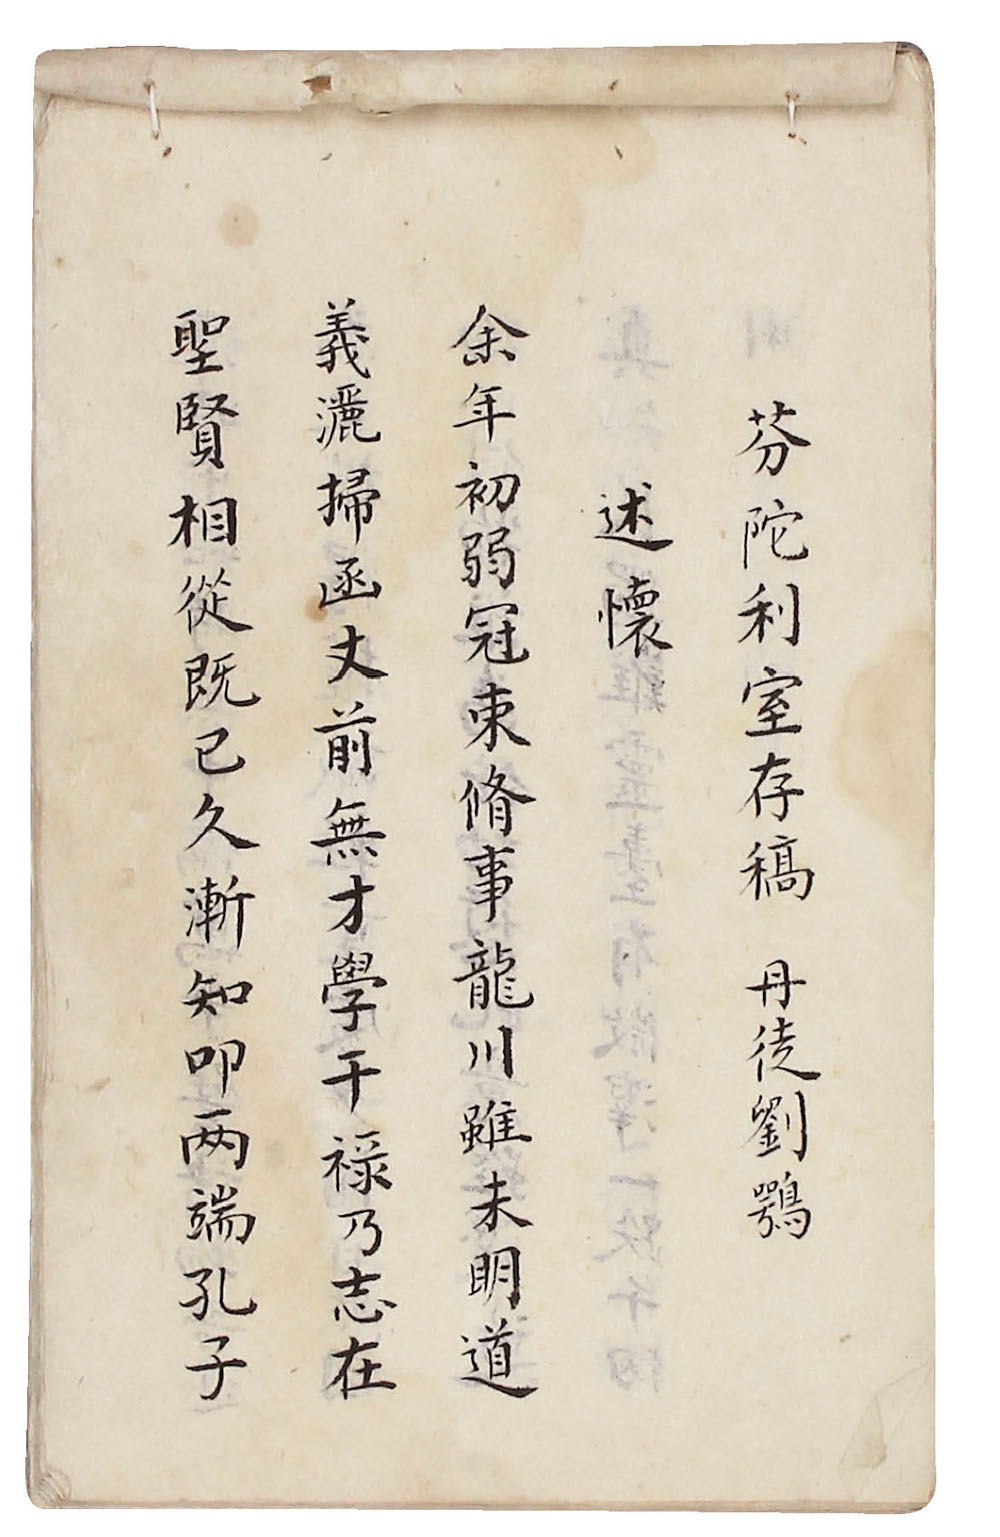 芬陀利室存稿 丹徒劉鶚
述懷
余年初弱冠束脩事龍川雖未明道
義灑掃函丈前無才學干祿乃志在
聖賢相從既已久漸知叩两端孔子